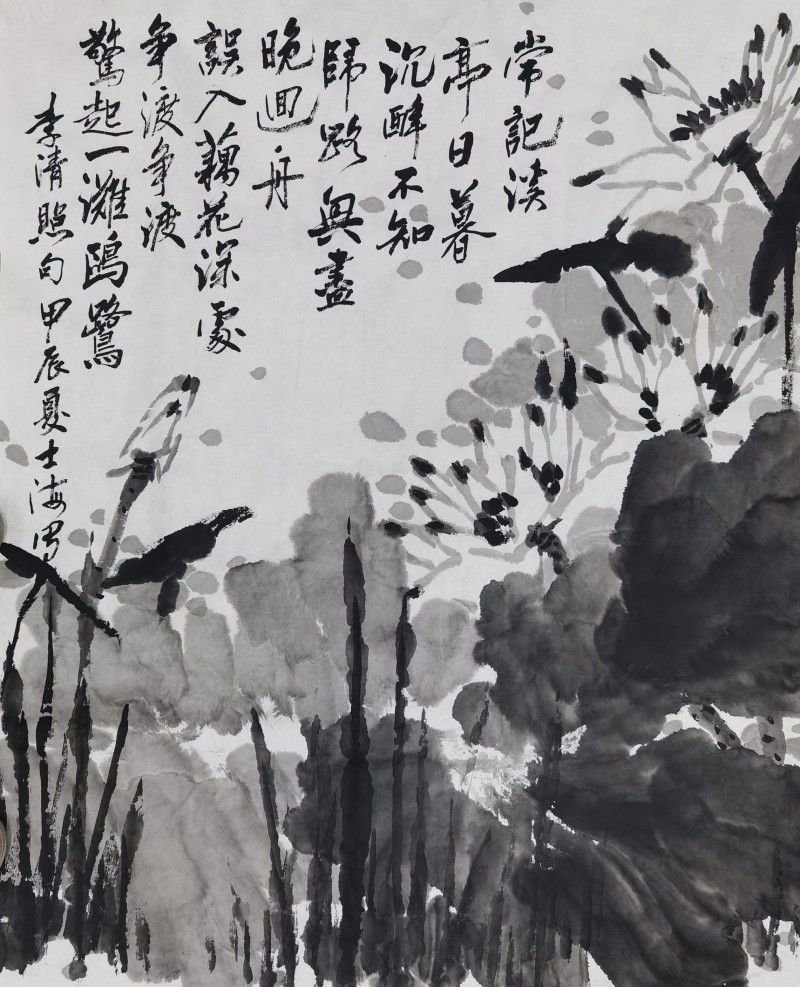 常記溪
亭日暮
沉醉不知
歸路興盡
晚迴舟
誤入藕花深處
爭渡爭渡
驚起一灘鷗鷺
李清照句甲辰夏士海寫